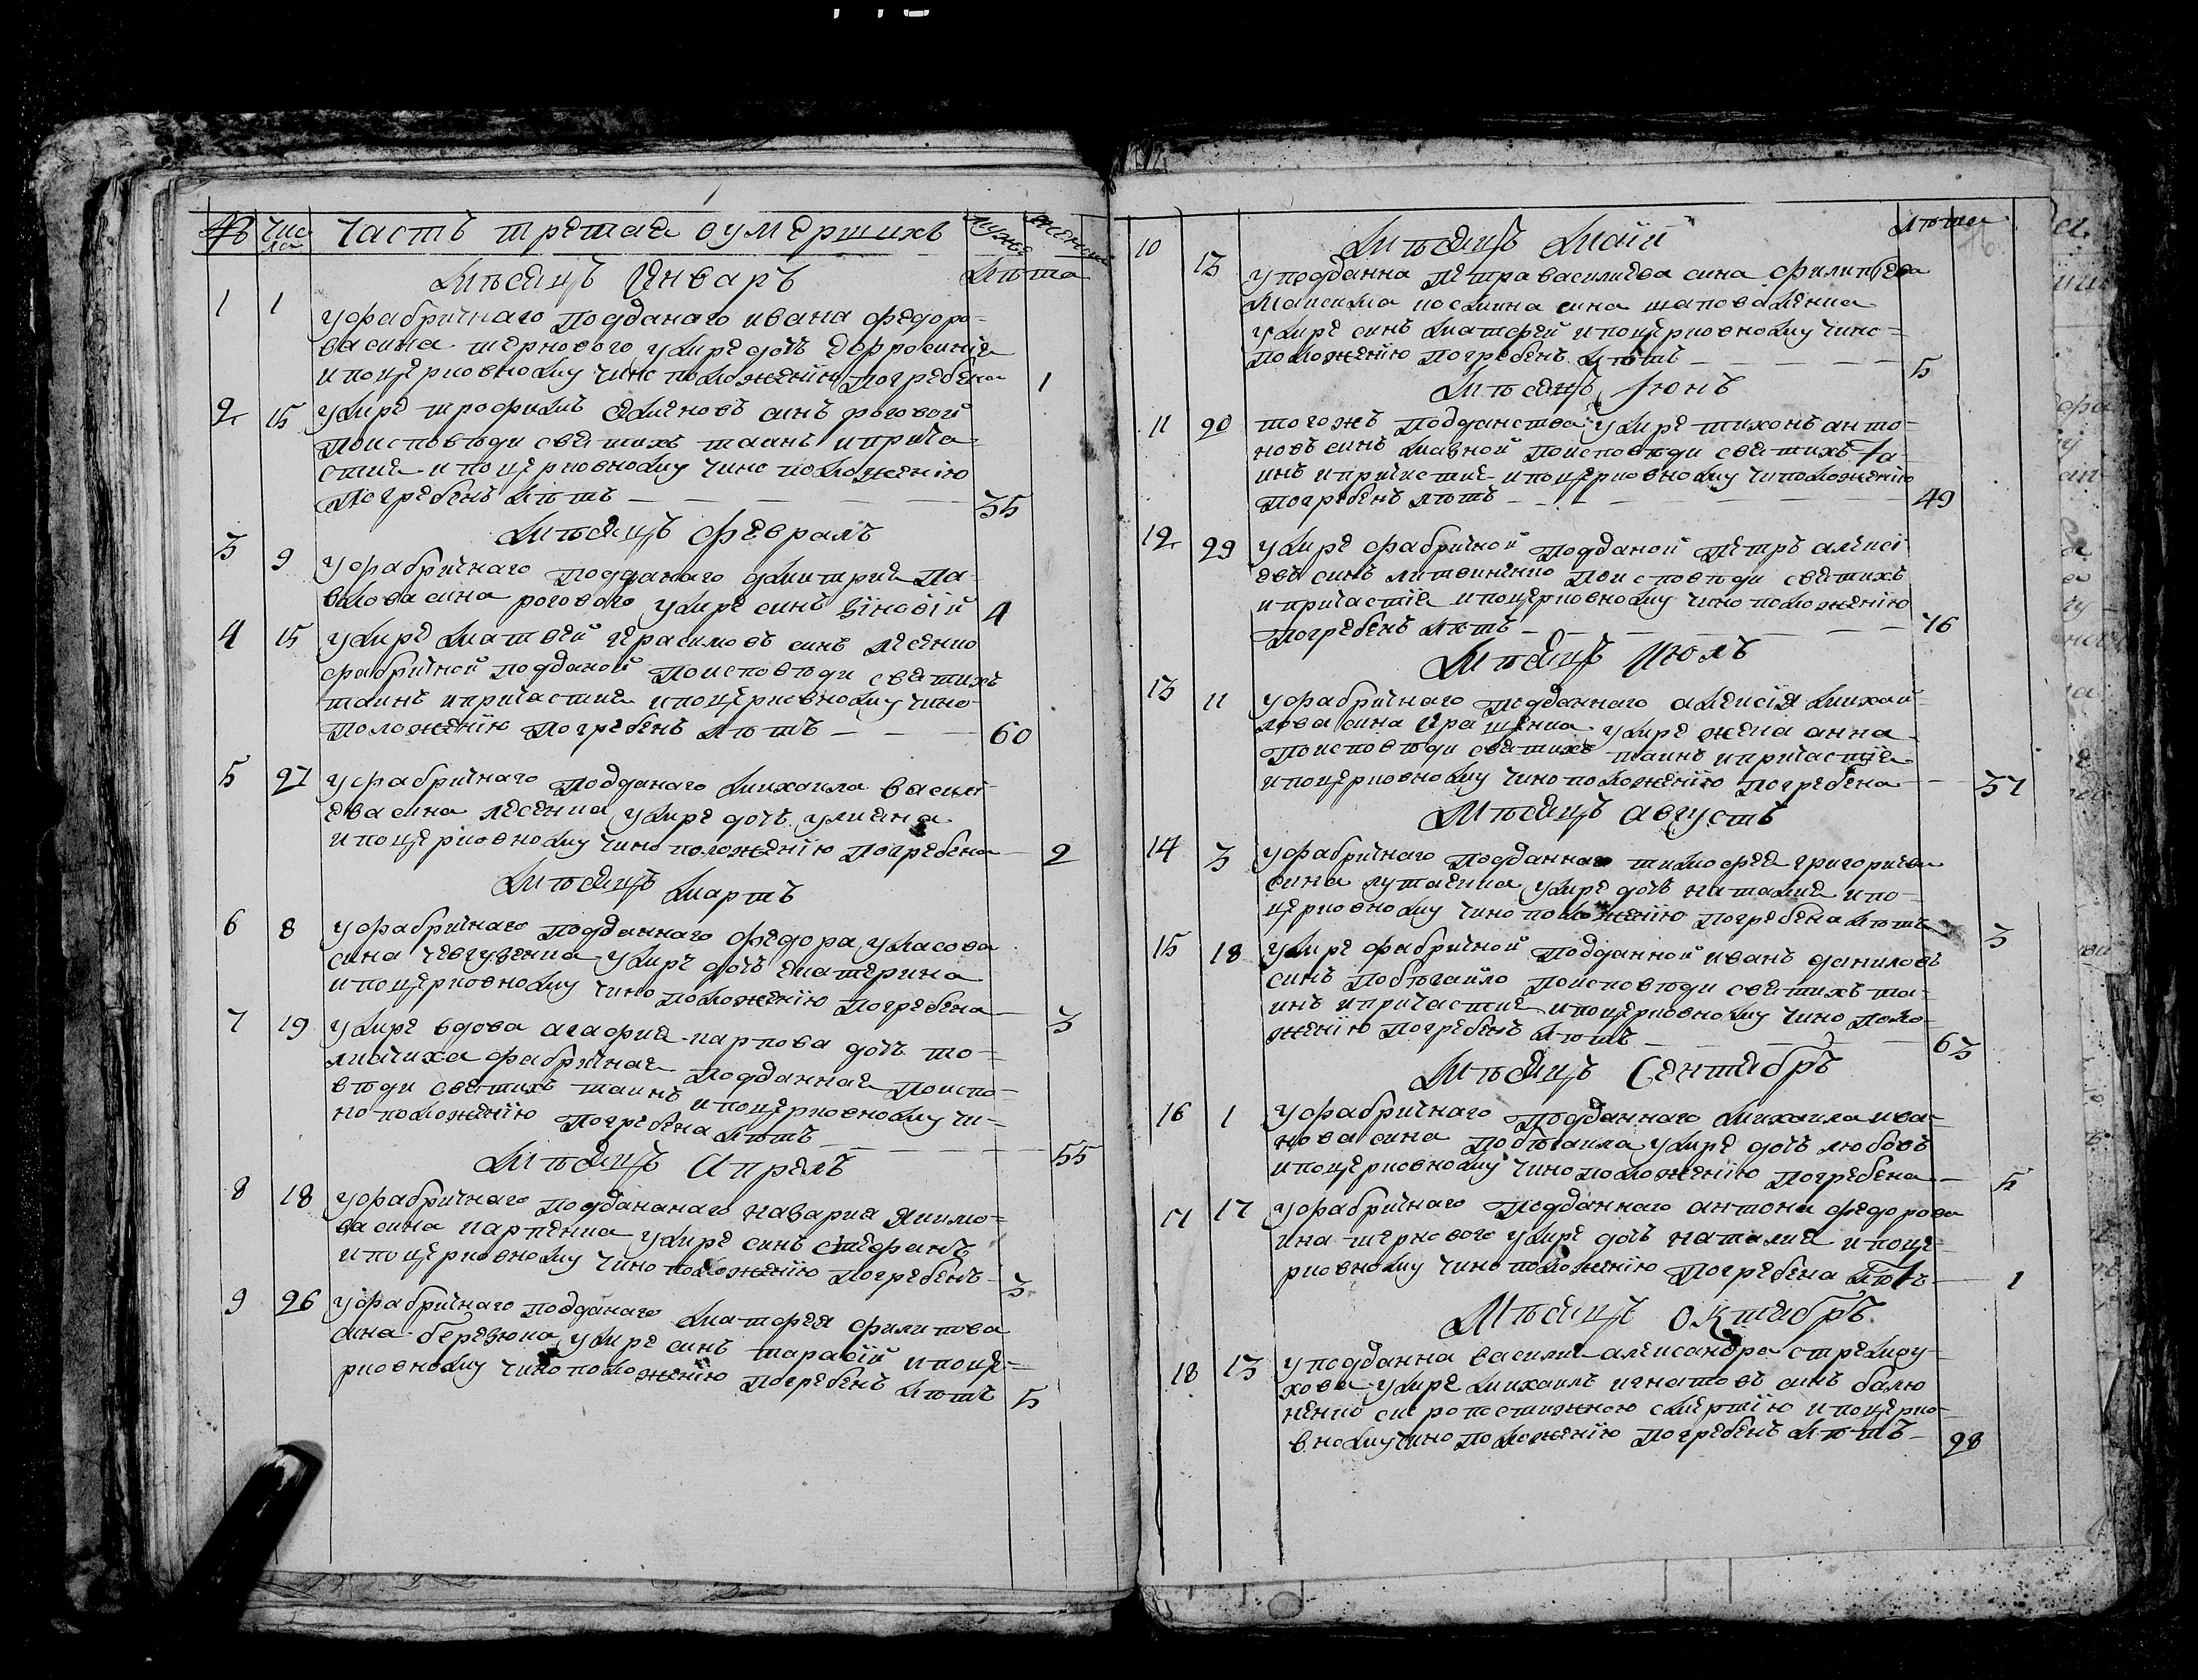 № Чис ла Часть третая оумершихъ мужеска женска
Мѣсяцъ Январъ Лѣта
1 1 У фабричнаго подданаго ивана федоро-
ва сина тернового умре дочъ Ефросиния
и по церковному чино положению погребена 1
2 15 Умре трофимъ Якимовъ синъ роговой
по исповѣди святихъ таинъ и прича-
стия и по церковному чино положенію
погребенъ лѣтъ 35
Мѣсяцъ февралъ
3 9 У фабричнаго подданаго дмитрия Па-
влова сина рогового умре синъ Зіновій 4
4 15 Умре матвей герасимовъ синъ лесенко
фабричной подданой по исповѣди святихъ
таинъ и причастия и по церковному чино-
положению погребенъ лѣтъ 60
5 27 У фабричнаго подданаго михаила василі-
ева сина лесенка умре дочъ улияна
и по церковному чино положенію погребена 2
Мѣсяцъ мартъ
6 8 У фабричнаго подданнаго федора уласова
сина умре дочъ екатерина
и по церковному чино положенію погребена 3
7 19 Умре вдова агафия карпова дочъ то-
фабричная подданная по испо-
вѣди святихъ таинъ и по церковному чи-
но положенію погребена лѣтъ 55
Мѣсяцъ Апрелъ
8 18 У фабричнаго подданаго назария якимо-
ва сина карпенка умре синъ стефанъ
и по церковному чино положенію погребенъ 3
9 26 У фабричнаго подданаго матфея филипова
сина березюка умре синъ тарасій и по це-
рковному чино положенію погребенъ лѣтъ 5
Мѣсяцъ Маій Лѣта
10 13 У подданка Петра василиева сина филипѣева
сина шаповаленка
умре синъ матфей и по церковному чино-
положению погребенъ лѣтъ 5
Мѣсяцъ Iюнъ
11 20 того жъ подданства умре тихонъ анто-
новъ синъ мазной по исповѣди святихъ та-
инъ и причастие и по церковному чиположению
погребенъ лѣтъ 49
12 29 Умре фабричной подданой Петръ алексі
евъ синъ литвиненко по исповѣди святихъ
и причастія и по церковному чино положению
погребенъ лѣтъ 76
Мѣсяцъ Июлъ
13 11 У фабричнаго подданнаго алексія михай-
лова сина умре жена анна
по исповѣди святихъ таинъ и причастіе
и по церковному чино положению погребена 37
Мѣсяцъ августъ
14 3 У фабричнаго подданнаго тимофея григориева
сина лутаенка умре дочъ наталия и по-
церковному чино положению погребена лѣтъ 3
15 18 Умре фабричной подданной иванъ даниловъ
синъ побѣгайло по исповѣди святихъ та-
инъ и причастие и по церковному чино поло-
жению погребенъ лѣтъ 63
Мѣсяцъ Сентябръ
16 1 У фабричнаго подданнаго михаила ива-
нова сина побѣгаила умре дочъ любовъ
и по церковному чино положению погребена 5
17 17 У фабричнаго подданнаго антона федорова
ина тернового умре дочъ наталия и по це-
рковному чино положению погребена лѣтъ 1
Мѣсяцъ октябръ
18 13 У подданка василия александра стремоу-
хова умре михаилъ игнатовъ синъ балю
ненко скоропостижною смертию и по церко-
вному чино положению погребенъ лѣтъ 28